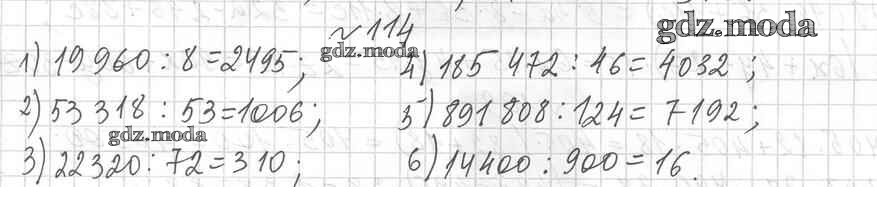 № 114
gdz.moda
gdz.moda
1) 19 960 : 8 = 2495;
4) 185 472 : 46 = 4032 ;
2) 53 318 : 53 = 1006;
5) 891 808 : 124 = 7192;
gdz.moda
3) 22320 : 72 = 310;
6) 14400 : 900 = 16.